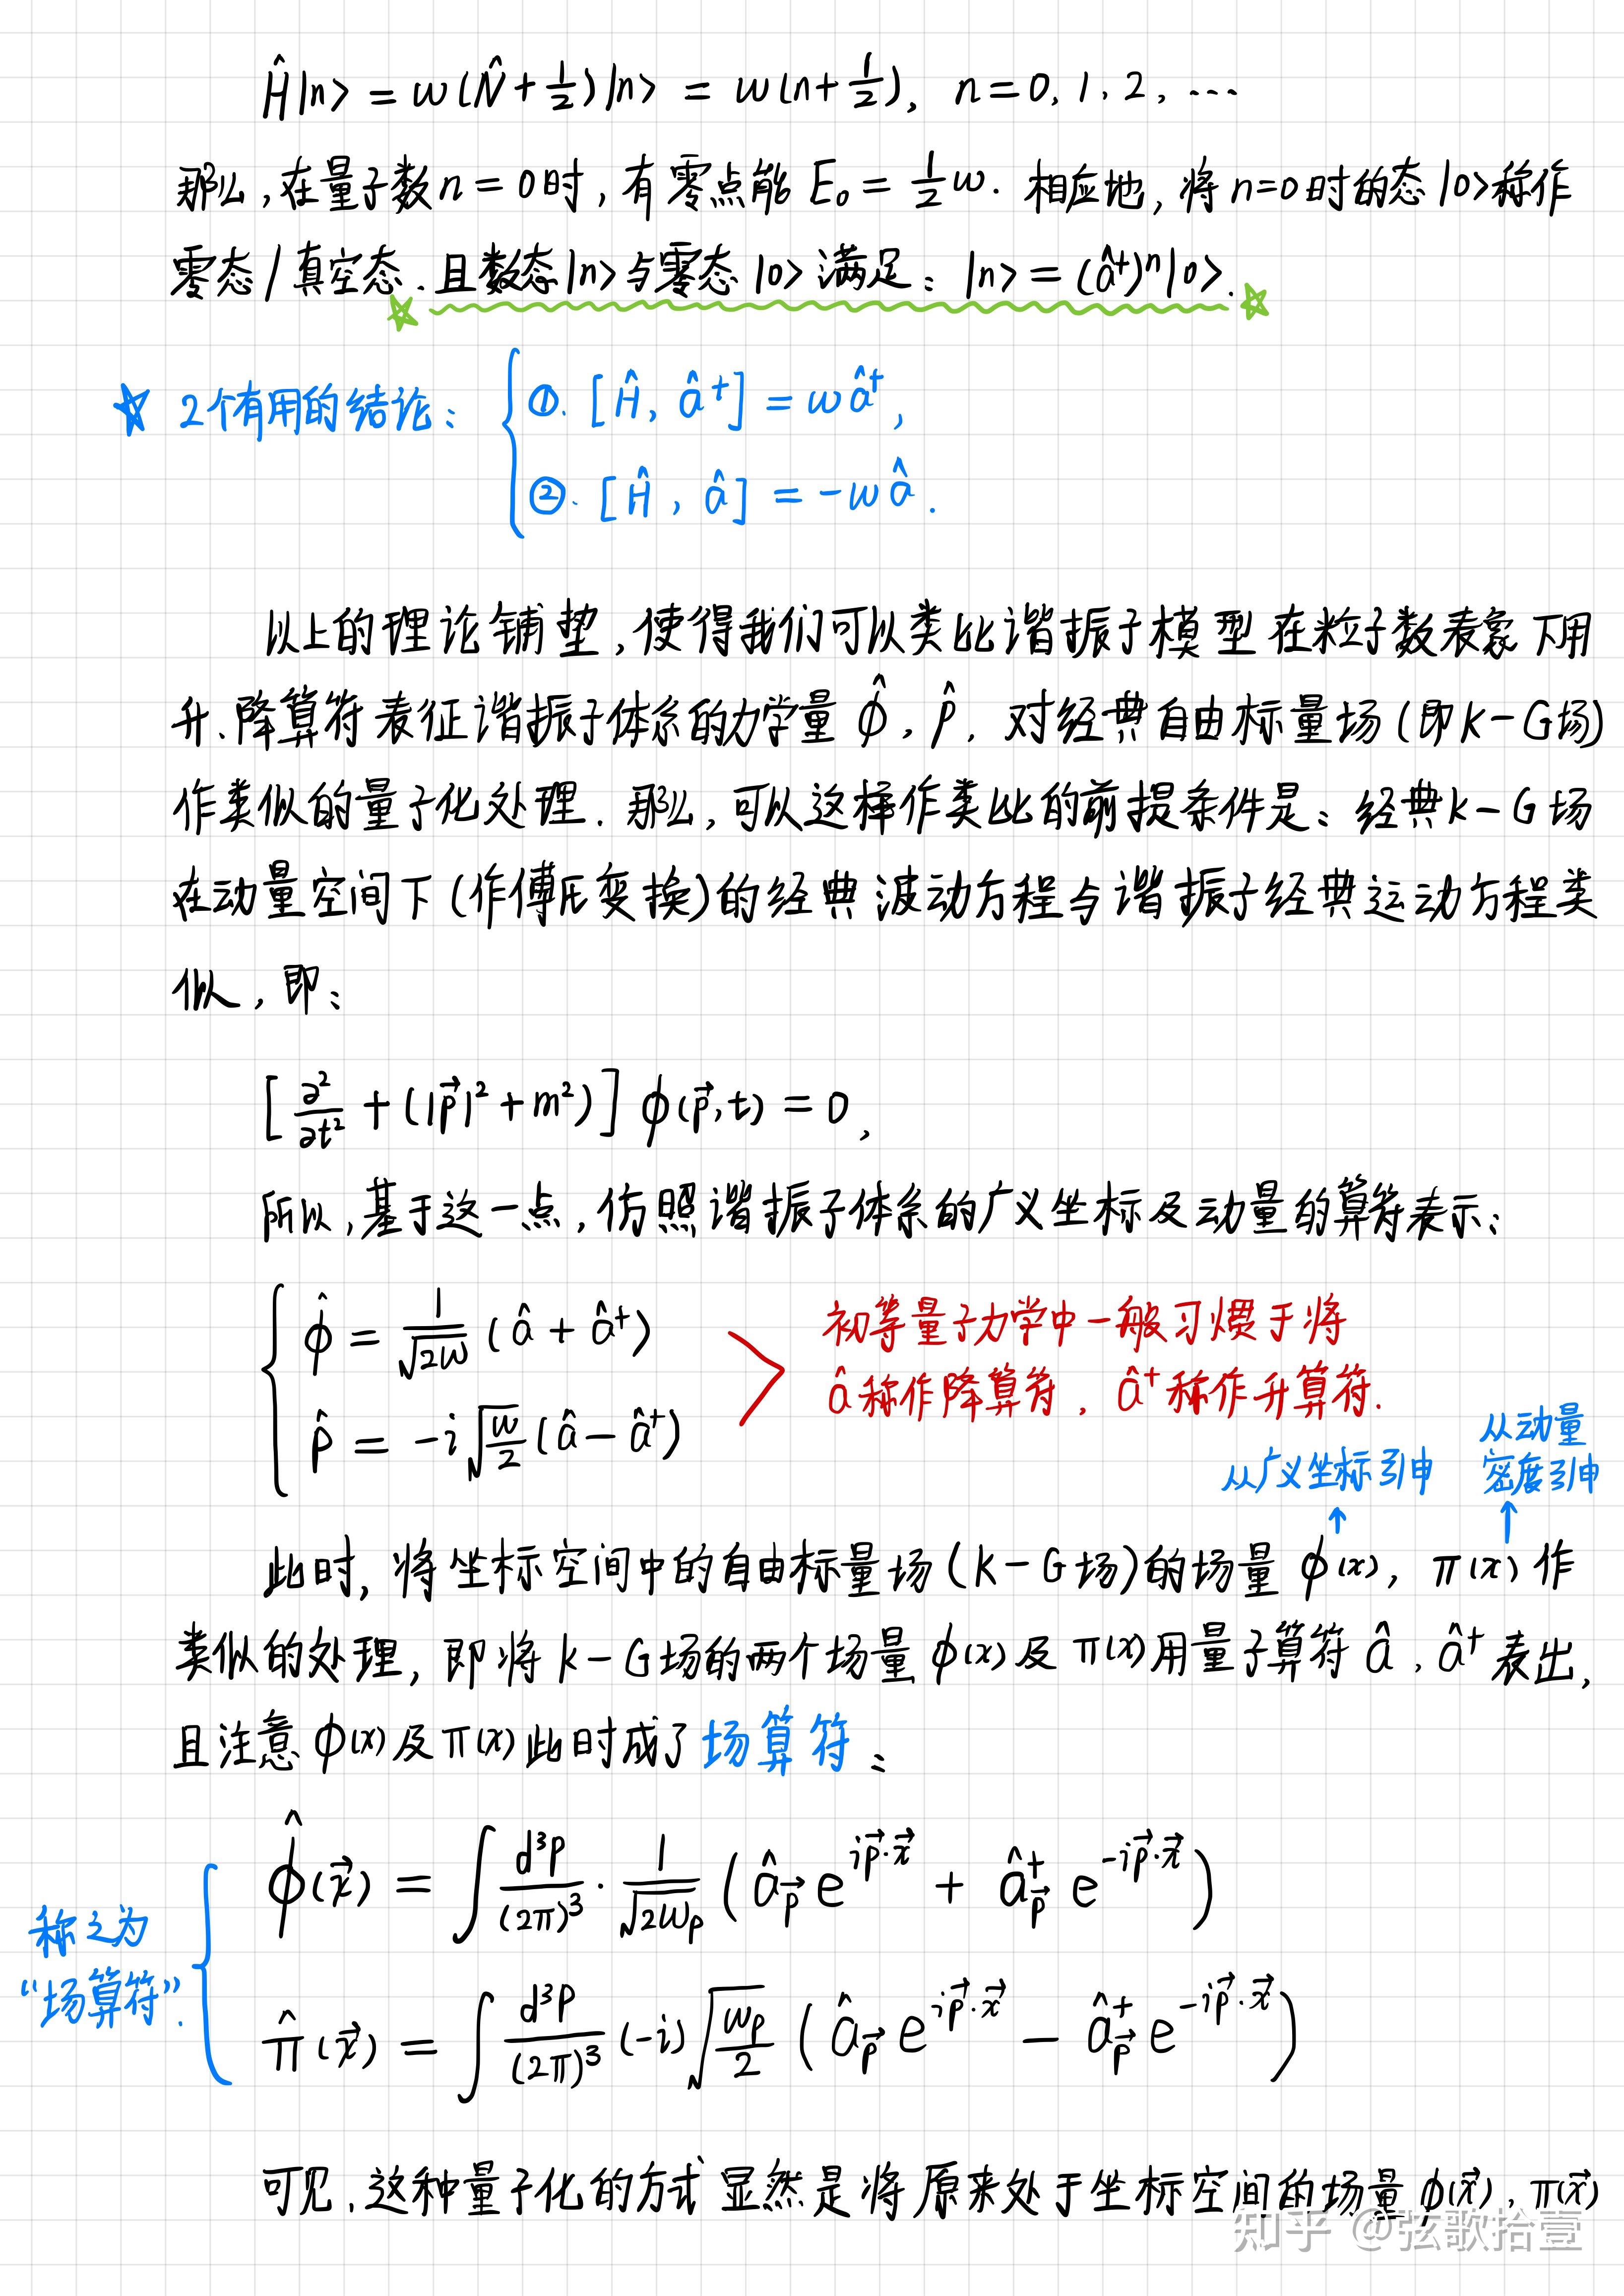 Ĥ|n> = ω(N̂ + 1/2)|n> = ω(n + 1/2), n = 0, 1, 2, ...
那么,在量子数 n = 0 时,有零点能 E₀ = 1/2 ω. 相应地,将 n=0 时的态 |0> 称作
零态/真空态.且数态|n>与零态|0>满足: |n> = (â†)ⁿ|0>.
2个有用的结论:
①. [Ĥ, â†] = ωâ†,
②. [Ĥ, â] = -ωâ.
以上的理论铺垫,使得我们可以类比谐振子模型在粒子数表象下用
升、降算符表征谐振子体系的力学量 φ̂, p̂, 对经典自由标量场(即K-G场)
作类似的量子化处理. 那么,可以这样作类比的前提条件是: 经典K-G场
在动量空间下(作傅氏变换)的经典波动方程与谐振子经典运动方程类
似,即:
[∂²/∂t² + (|p⃗|² + m²)] φ(p⃗,t) = 0,
所以,基于这一点,仿照谐振子体系的广义坐标及动量的算符表示:
φ̂ = 1/√(2ω) (â + â†)
p̂ = -i√(ω/2) (â - â†)
初等量子力学中一般习惯于将
â称作降算符, â†称作升算符.
从广义坐标引申
从动量
密度引申
此时,将坐标空间中的自由标量场(K-G场)的场量 φ(x), π(x) 作
类似的处理,即将K-G场的两个场量φ(x)及π(x)用量子算符 â, â† 表出,
且注意 φ(x)及π(x)此时成了场算符:
称之为
“场算符”.
φ̂(x⃗) = ∫ d³p/(2π)³ · 1/√(2ω_p) (â_p⃗ e^{ip⃗·x⃗} + â†_p⃗ e^{-ip⃗·x⃗})
π̂(x⃗) = ∫ d³p/(2π)³ (-i)√(ω_p/2) (â_p⃗ e^{ip⃗·x⃗} - â†_p⃗ e^{-ip⃗·x⃗})
可见,这种量子化的方式显然是将原来处于坐标空间的场量 φ(x⃗), π(x⃗)
知乎 @弦歌拾壹